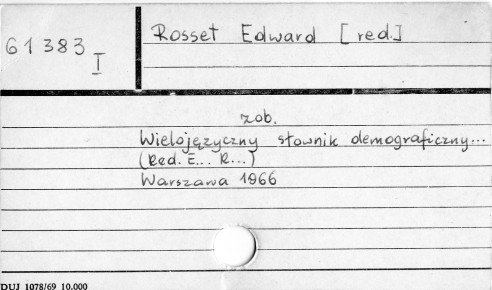 61383
I
Rosset Edward [red.]
zob.
Wielojęzyczny słownik demograficzny...
(Red. E... R...)
Warszawa 1966
DUJ 1078/69 10.000